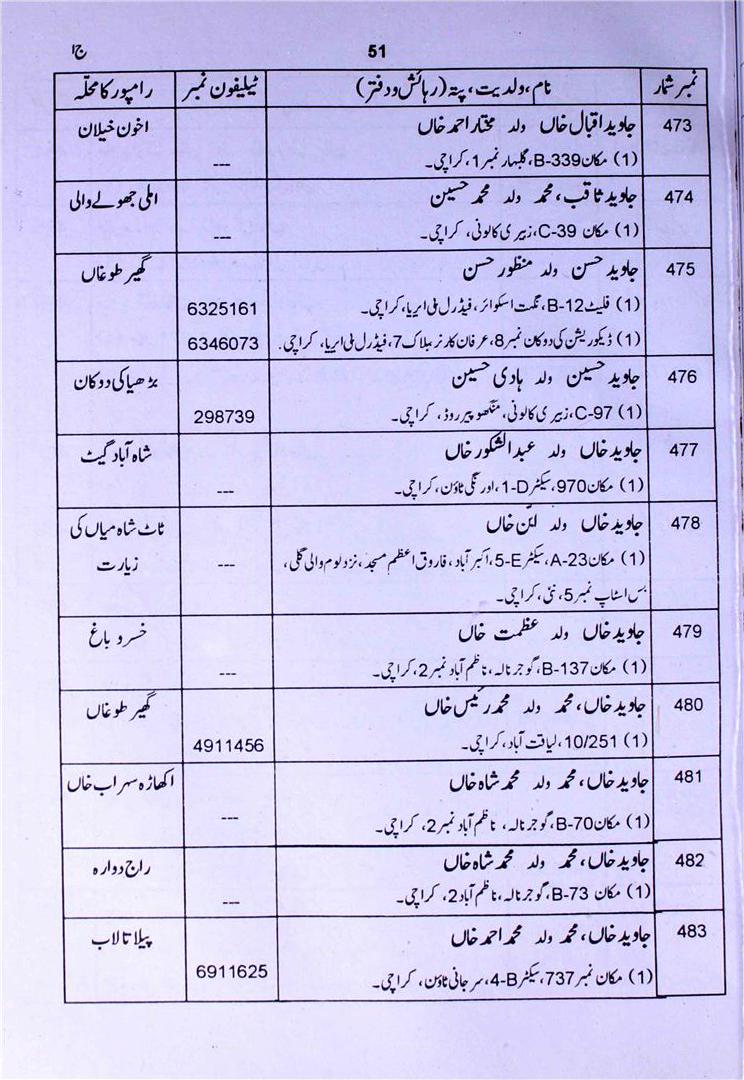 51
ج ا
نمبر شمار	نام، ولدیت، پتہ (رہائش و دفتر)	ٹیلیفون نمبر	رامپور کا محلّہ
473	جاوید اقبال خاں ولد مختار احمد خاں	اخون خیلان
(1) مکان B-339، گلبہار نمبر 1، کراچی۔	---
474	جاوید ثاقب، محمد ولد محمد حسین	املی جھولے والی
(1) مکان C-39، زبیری کالونی، کراچی۔	---
475	جاوید حسن ولد منظور حسن	گھیر طوغاں
(1) فلیٹ B-12، نگہت اسکوائر، فیڈرل بی ایریا، کراچی۔	6325161
(1) ڈیکوریشن کی دوکان نمبر 8، عرفان کارنر بلاک 7، فیڈرل بی ایریا، کراچی۔	6346073
476	جاوید حسین ولد ہادی حسین	بڑھیا کی دوکان
(1) C-97، زبیری کالونی، منگھوپیر روڈ، کراچی۔	298739
477	جاوید خاں ولد عبدالشکور خاں	شاہ آباد گیٹ
(1) مکان 970، سیکٹر 1-D، اورنگی ٹاؤن، کراچی۔	---
478	جاوید خاں ولد لبّن خاں	ٹاٹ شاہ میاں کی
(1) مکان A-23، سیکٹر 5-E، اکبر آباد، فاروق اعظم مسجد، نزد لوم والی گلی،	---	زیارت
بس اسٹاپ نمبر 5، نئی، کراچی۔
479	جاوید خاں ولد عظمت خاں	خسرو باغ
(1) مکان B-137، گوجر نالہ، ناظم آباد نمبر 2، کراچی۔	---
480	جاوید خاں، محمد ولد محمد رئیس خاں	گھیر طوغاں
(1) 10/251، لیاقت آباد، کراچی۔	4911456
481	جاوید خاں، محمد ولد محمد شاہ خاں	اکھاڑہ سہراب خاں
(1) مکان B-70، گوجر نالہ، ناظم آباد نمبر 2، کراچی۔	---
482	جاوید خاں، محمد ولد محمد شاہ خاں	راج دوارہ
(1) مکان B-73، گوجر نالہ، ناظم آباد 2، کراچی۔	---
483	جاوید خاں، محمد ولد محمد احمد خاں	پیلا تالاب
(1) مکان نمبر 737، سیکٹر 4-B، سرجانی ٹاؤن، کراچی۔	6911625